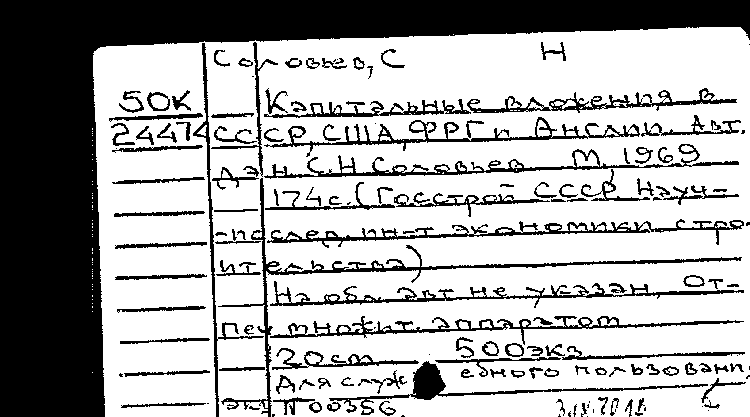 Соловьев, С Н
50К Капитальные вложения в
24474 СССР, США, ФРГ и Англии. Авт.
дэн. С.Н Соловьев М, 1969
174с. (Госстрой СССР. Науч-
-послед. ин-т экономики стро-
ительства)
На обл. авт не указан. От-
печ множит. аппаратом
20см 500экз
Для служебного пользовани
экз. N 00356.